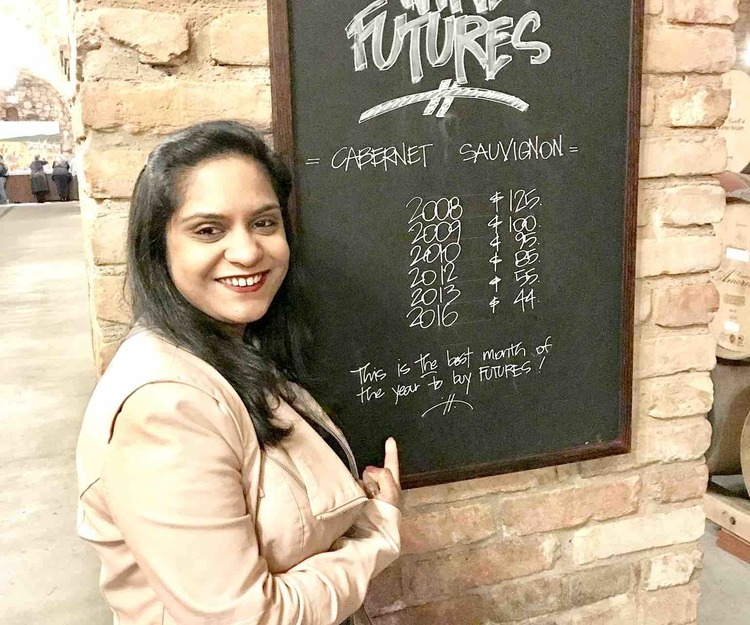 FUTURES
= CABERNET SAUVIGNON =
2008 $ 125.
2009 $ 100.
2010 $ 95.
2012 $ 85.
2013 $ 55.
2016 $ 44.
This is the best month of
the year to buy FUTURES!